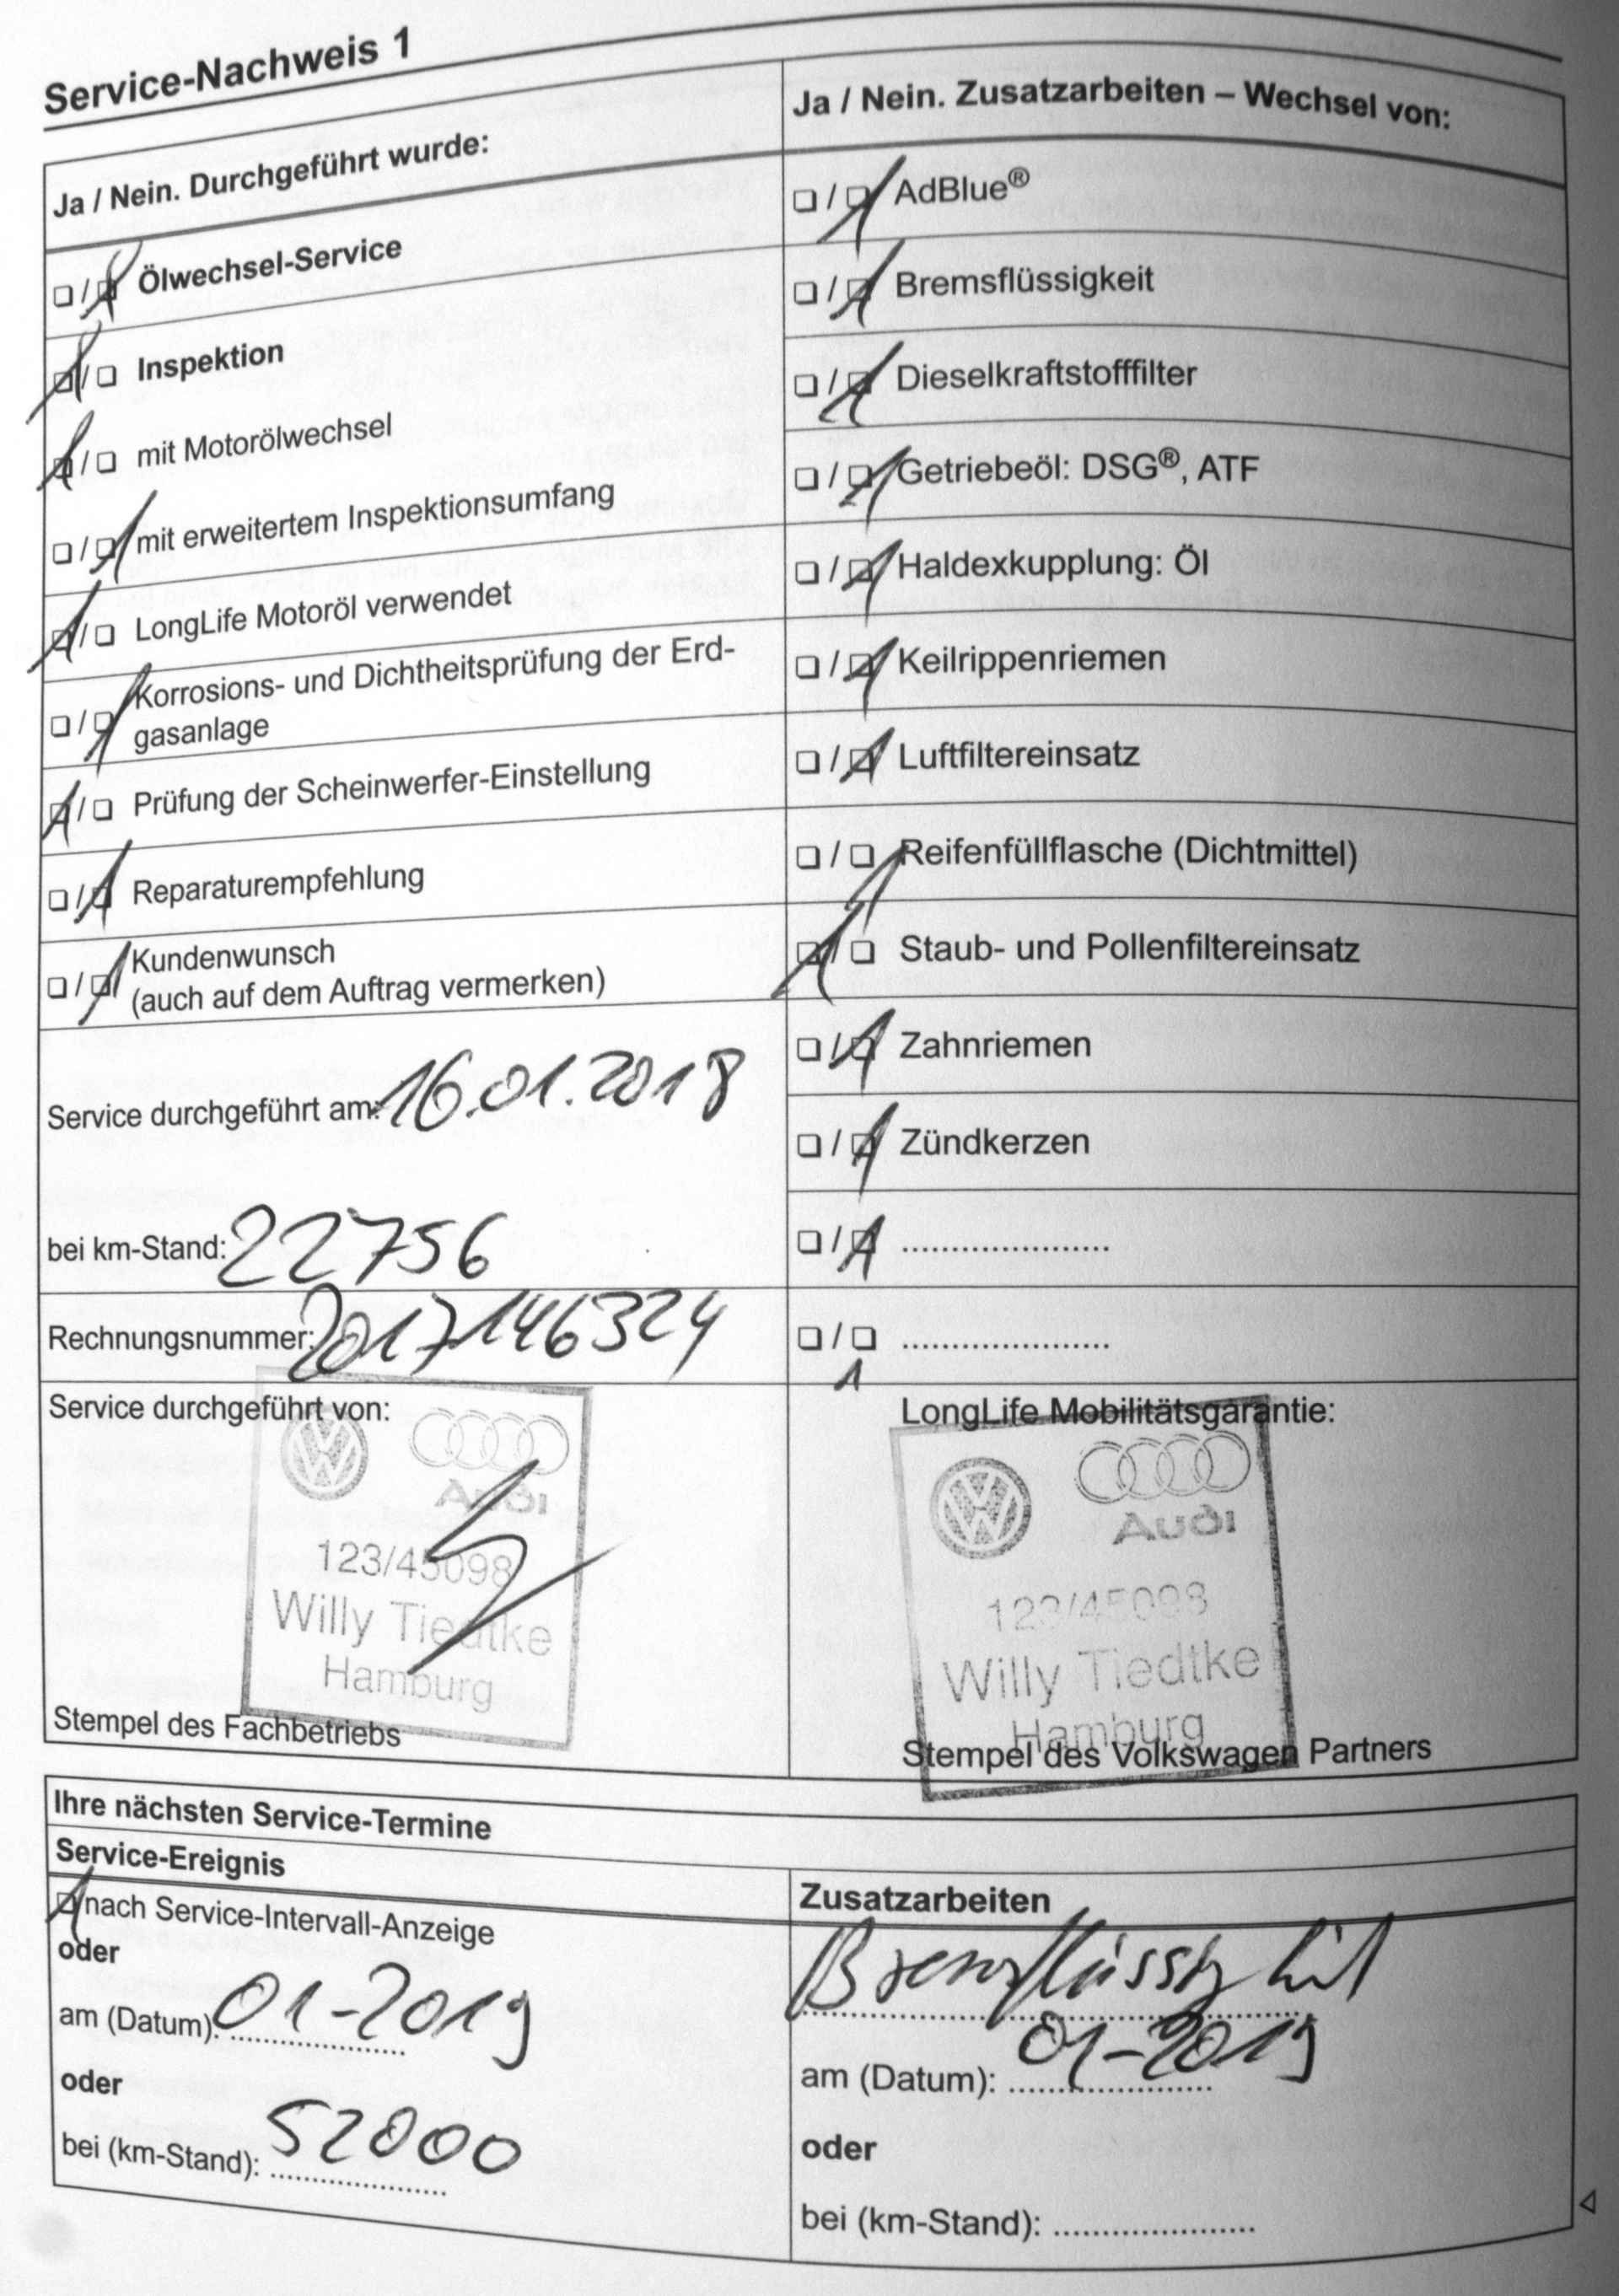 Service-Nachweis 1
Ja / Nein. Durchgeführt wurde:
Ölwechsel-Service
Inspektion
mit Motorölwechsel
mit erweitertem Inspektionsumfang
LongLife Motoröl verwendet
Korrosions- und Dichtheitsprüfung der Erd-
gasanlage
Prüfung der Scheinwerfer-Einstellung
Reparaturempfehlung
Kundenwunsch
(auch auf dem Auftrag vermerken)
Service durchgeführt am: 16.01.2018
bei km-Stand: 22756
Rechnungsnummer: 2017146324
Service durchgeführt von:
Audi
123/45098
Willy Tiedtke
Hamburg
Stempel des Fachbetriebs
Ja / Nein. Zusatzarbeiten – Wechsel von:
AdBlue®
Bremsflüssigkeit
Dieselkraftstofffilter
Getriebeöl: DSG®, ATF
Haldexkupplung: Öl
Keilrippenriemen
Luftfiltereinsatz
Reifenfüllflasche (Dichtmittel)
Staub- und Pollenfiltereinsatz
Zahnriemen
Zündkerzen
LongLife Mobilitätsgarantie:
Audi
123/45098
Willy Tiedtke
Hamburg
Stempel des Volkswagen Partners
Ihre nächsten Service-Termine
Service-Ereignis
nach Service-Intervall-Anzeige
oder
am (Datum): 01-2019
oder
bei (km-Stand): 52000
Zusatzarbeiten
Bremsflüssigkeit
am (Datum): 01-2019
oder
bei (km-Stand):